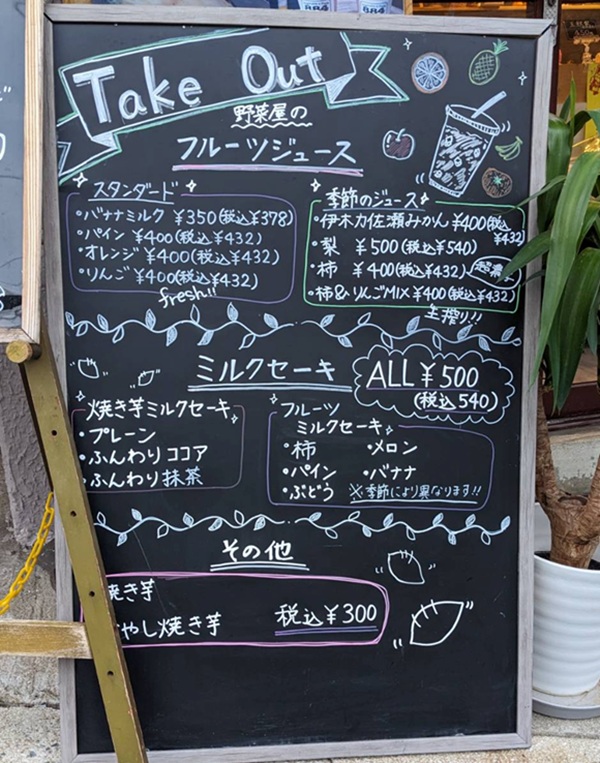 Take Out
野菜屋の
フルーツジュース
スタンダード
・バナナミルク ¥350(税込¥378)
・パイン ¥400(税込¥432)
・オレンジ ¥400(税込¥432)
・りんご ¥400(税込¥432)
fresh!!
季節のジュース
・伊木力佐瀬みかん ¥400(税込¥432)
・梨 ¥500(税込¥540)
・柿 ¥400(税込¥432)
・柿&りんごMIX ¥400(税込¥432)
生搾り!!
ミルクセーキ
ALL ¥500
(税込540)
焼き芋ミルクセーキ
・プレーン
・ふんわりココア
・ふんわり抹茶
フルーツ
ミルクセーキ
・柿 ・メロン
・パイン ・バナナ
・ぶどう ※季節により異なります!!
その他
焼き芋
やし焼き芋 税込¥300